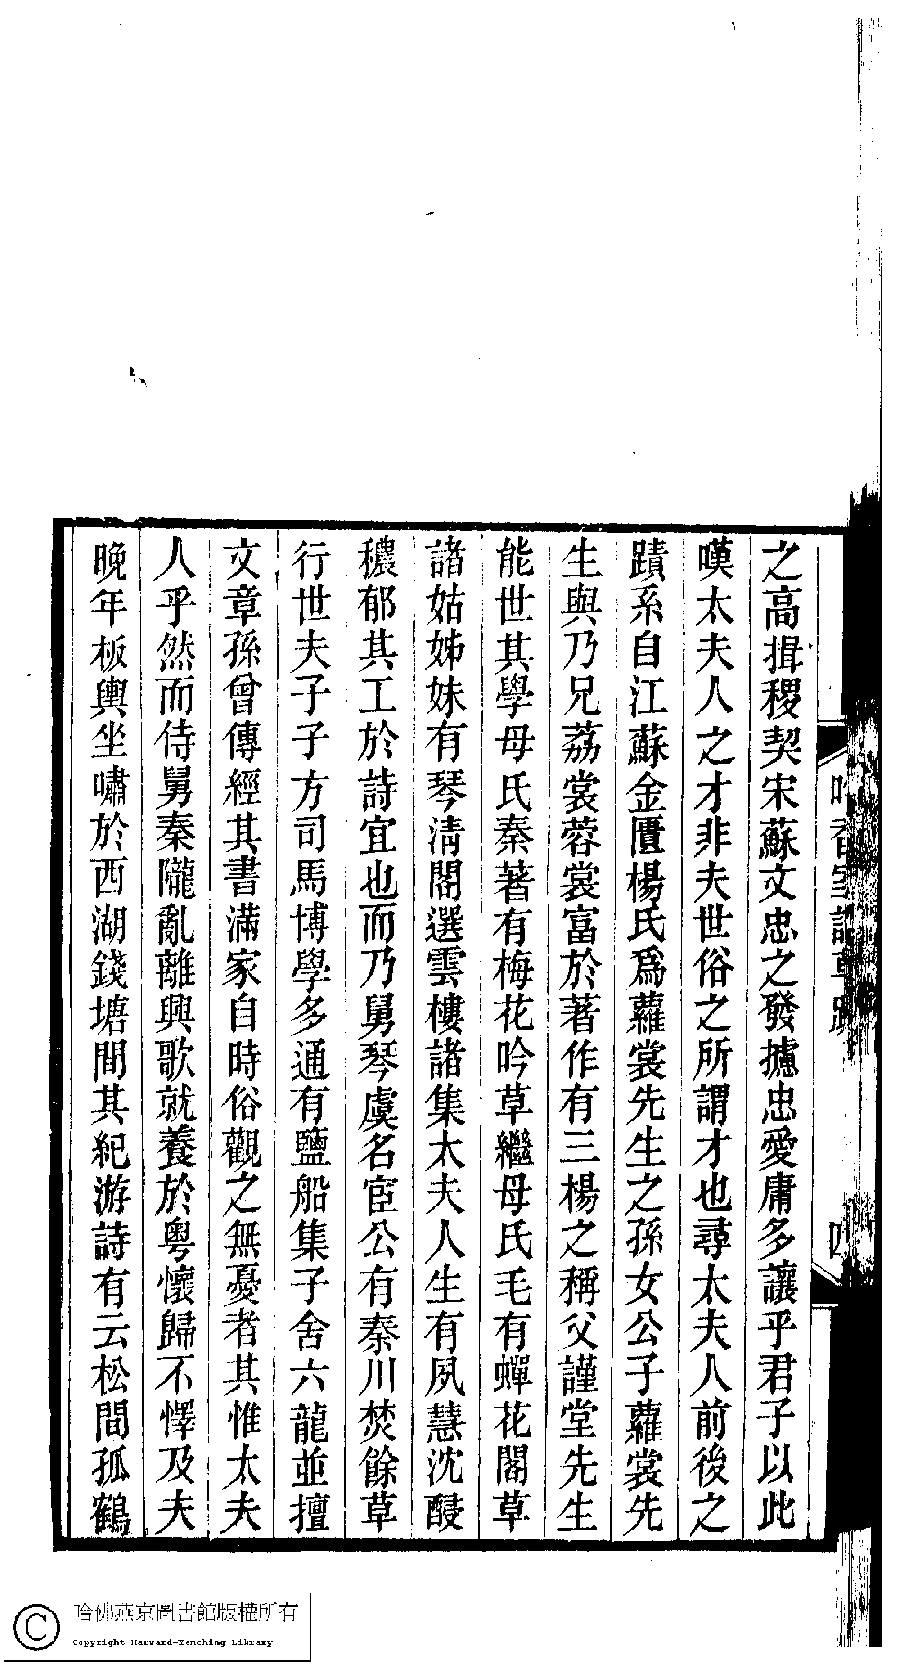 之高揖稷契宋蘇文忠之發攄忠愛庸多讓乎君子以此
嘆太夫人之才非夫世俗之所謂才也尋太夫人前後之
蹟系自江蘇金匱楊氏爲蘿裳先生之孫女公子蘿裳先
生與乃兄荔裳蓉裳富於著作有三楊之稱父謹堂先生
能世其學母氏秦著有梅花吟草繼母氏毛有蟬花閣草
諸姑姊妹有琴淸閣選雲樓諸集太夫人生有夙慧沈酣
穠郁其工於詩宜也而乃舅琴虞名宦公有秦川焚餘草
行世夫子子方司馬博學多通有鹽船集子舍六龍並擅
文章孫曾傳經其書滿家自時俗觀之無憂者其惟太夫
人乎然而侍舅秦隴亂離興歌就養於粤懷歸不懌及夫
晚年板輿坐嘯於西湖錢塘間其紀游詩有云松間孤鶴
四
哈佛燕京圖書館版權所有
Copyright Harvard-Yenching Library